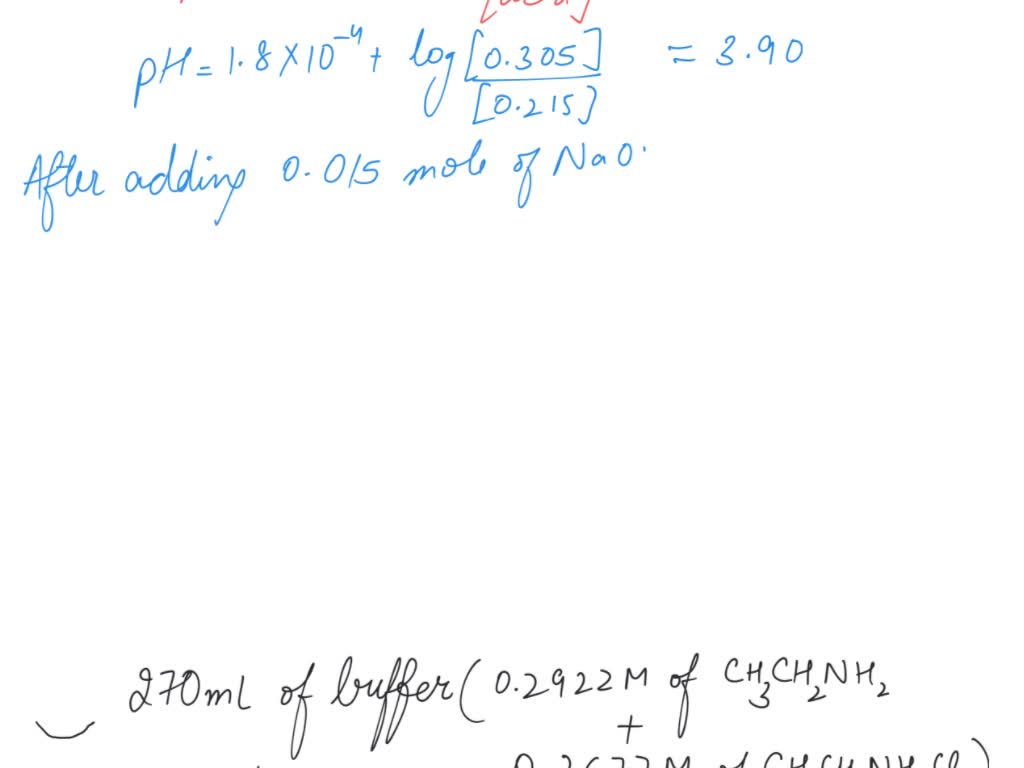 [acid]
pH = 1.8 × 10⁻⁴ + log [0.305] / [0.215] = 3.90
After adding 0.015 mole of NaO
270ml of buffer (0.2922M of CH₃CH₂NH₂
+